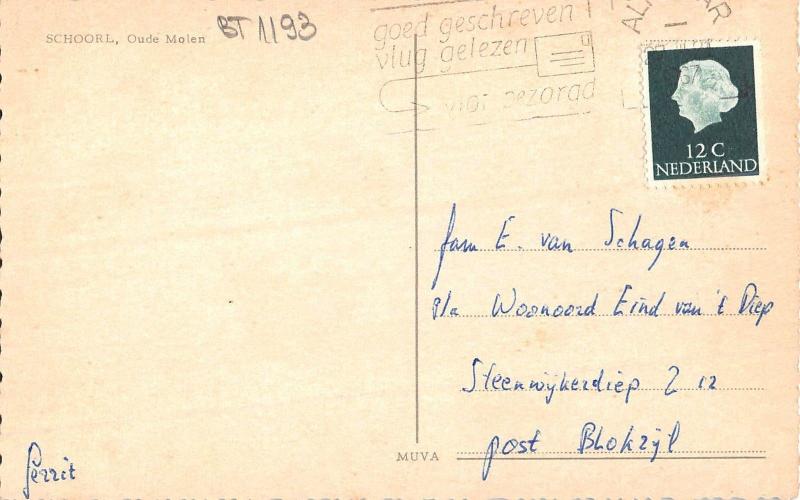 SCHOORL, Oude Molen
BT 1193
goed geschreven
vlug gelezen
vlot bezorgd
12 C
NEDERLAND
fam E. van Schagen
p/a Woonoord Eind van 't Diep
Steenwijkerdiep Z 12
post Blokzijl
MUVA
Gerrit